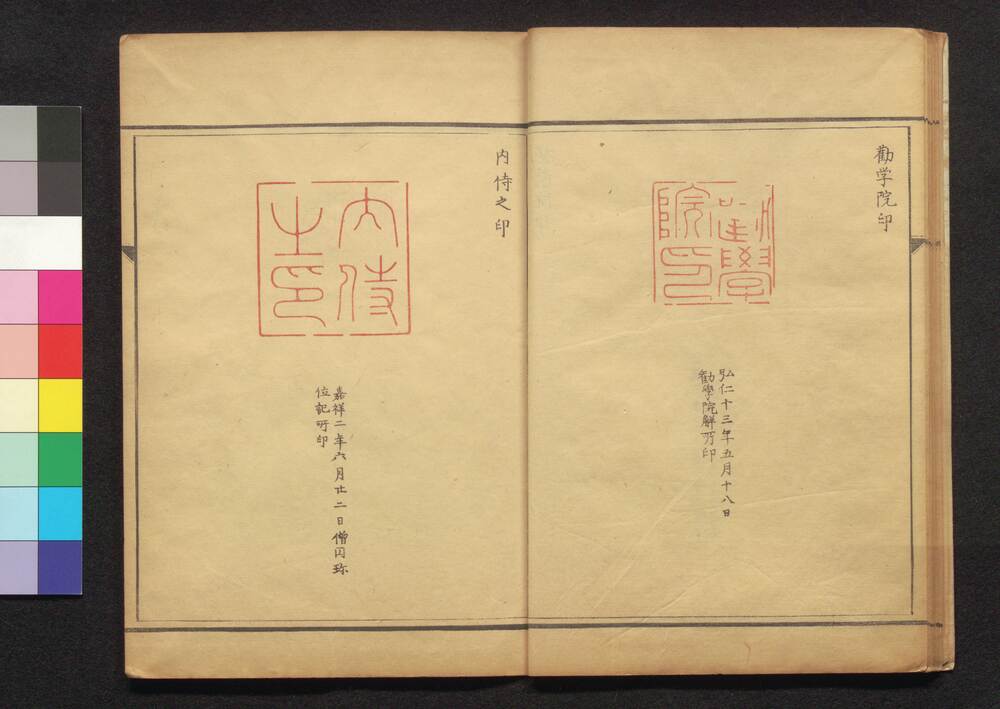 勸学院印
勸學院印
弘仁十三年五月十八日
勸學院解所印
内侍之印
内侍之印
嘉祥二年六月廿二日僧円珎
位記所印